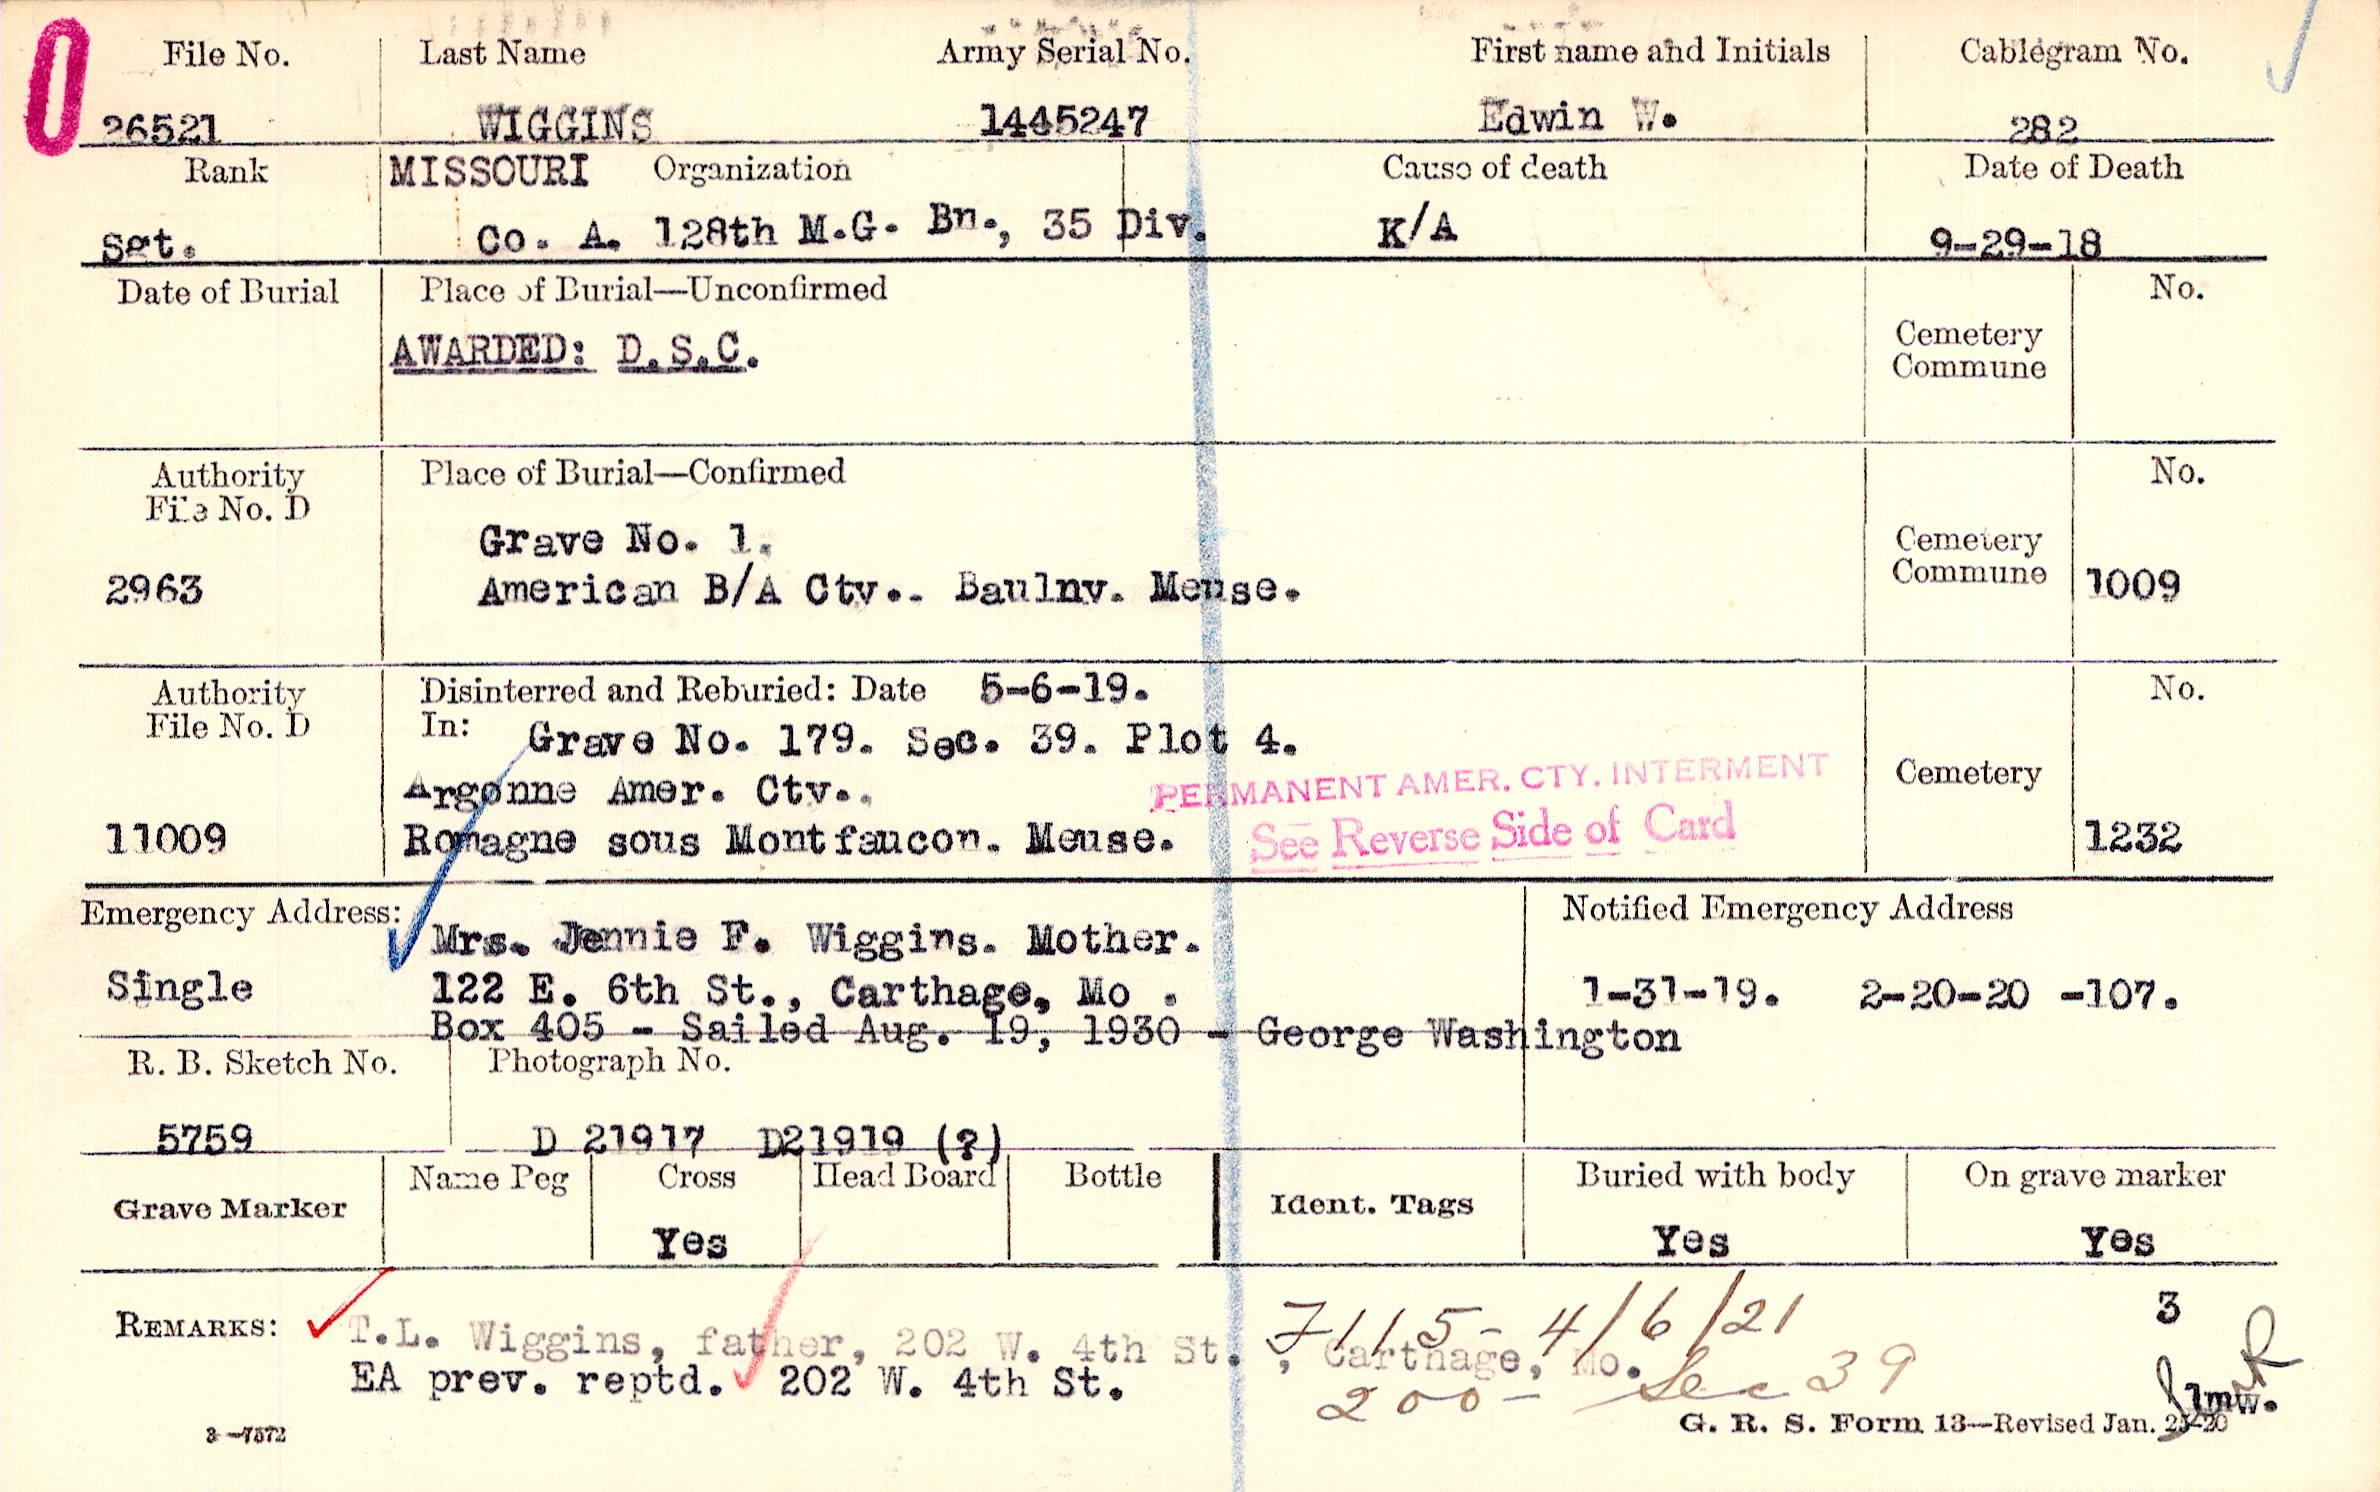 File No. Last Name Army Serial No. First name and Initials Cablegram No.
26521 WIGGINS 1445247 Edwin W. 282
Rank MISSOURI Organization Cause of death Date of Death
Sgt. Co. A. 128th M.G. Bn., 35 Div. K/A 9-29-18
Date of Burial Place of Burial—Unconfirmed No.
AWARDED: D.S.C.
Cemetery
Commune
Authority Place of Burial—Confirmed No.
File No. D
Grave No. 1.
Cemetery
2963 American B/A Cty.. Baulny. Meuse. Commune 1009
Authority Disinterred and Reburied: Date 5-6-19. No.
File No. D In: Grave No. 179. Sec. 39. Plot 4.
Argonne Amer. Cty.. PERMANENT AMER. CTY. INTERMENT Cemetery
11009 Romagne sous Montfaucon. Meuse. See Reverse Side of Card 1232
Emergency Address: Notified Emergency Address
Mrs. Jennie F. Wiggins. Mother.
Single 122 E. 6th St., Carthage, Mo . 1-31-19. 2-20-20 -107.
Box 405 - Sailed Aug. 19, 1930 - George Washington
R. B. Sketch No. Photograph No.
5759 D 21917 D21919 (?)
Grave Marker Name Peg Cross Head Board Bottle Ident. Tags Buried with body On grave marker
Yes Yes Yes
7115- 4/6/21 3
REMARKS: T.L. Wiggins, father, 202 W. 4th St. , Carthage, Mo.
EA prev. reptd. 202 W. 4th St. 200- Sec 39
lmw.
3—7572 G. R. S. Form 13—Revised Jan. 23-20